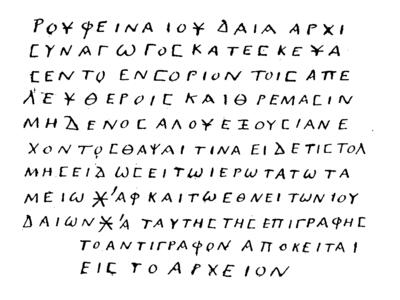 ΡΟΥΦΕΙΝΑ ΙΟΥΔΑΙΑ ΑΡΧΙ
ϹΥΝΑΓΩΓΟϹ ΚΑΤΕϹΚΕΥΑ
ϹΕΝ ΤΟ ΕΝϹΟΡΙΟΝ ΤΟΙϹ ΑΠΕ
ΛΕΥΘΕΡΟΙϹ ΚΑΙ ΘΡΕΜΑϹΙΝ
ΜΗΔΕΝΟϹ ΑΛΟΥ ΕΞΟΥϹΙΑΝ Ε
ΧΟΝΤΟϹ ΘΑΨΑΙ ΤΙΝΑ ΕΙ ΔΕ ΤΙϹ ΤΟΛ
ΜΗϹΕΙ ΔΩϹΕΙ ΤΩ ΙΕΡΩΤΑΤΩ ΤΑ
ΜΕΙΩ 𐆖 ʹΑΦ ΚΑΙ ΤΩ ΕΘΝΕΙ ΤΩΝ ΙΟΥ
ΔΑΙΩΝ 𐆖 ʹΑ ΤΑΥΤΗϹ ΤΗϹ ΕΠΙΓΡΑΦΗϹ
ΤΟ ΑΝΤΙΓΡΑΦΟΝ ΑΠΟΚΕΙΤΑΙ
ΕΙϹ ΤΟ ΑΡΧΕΙΟΝ